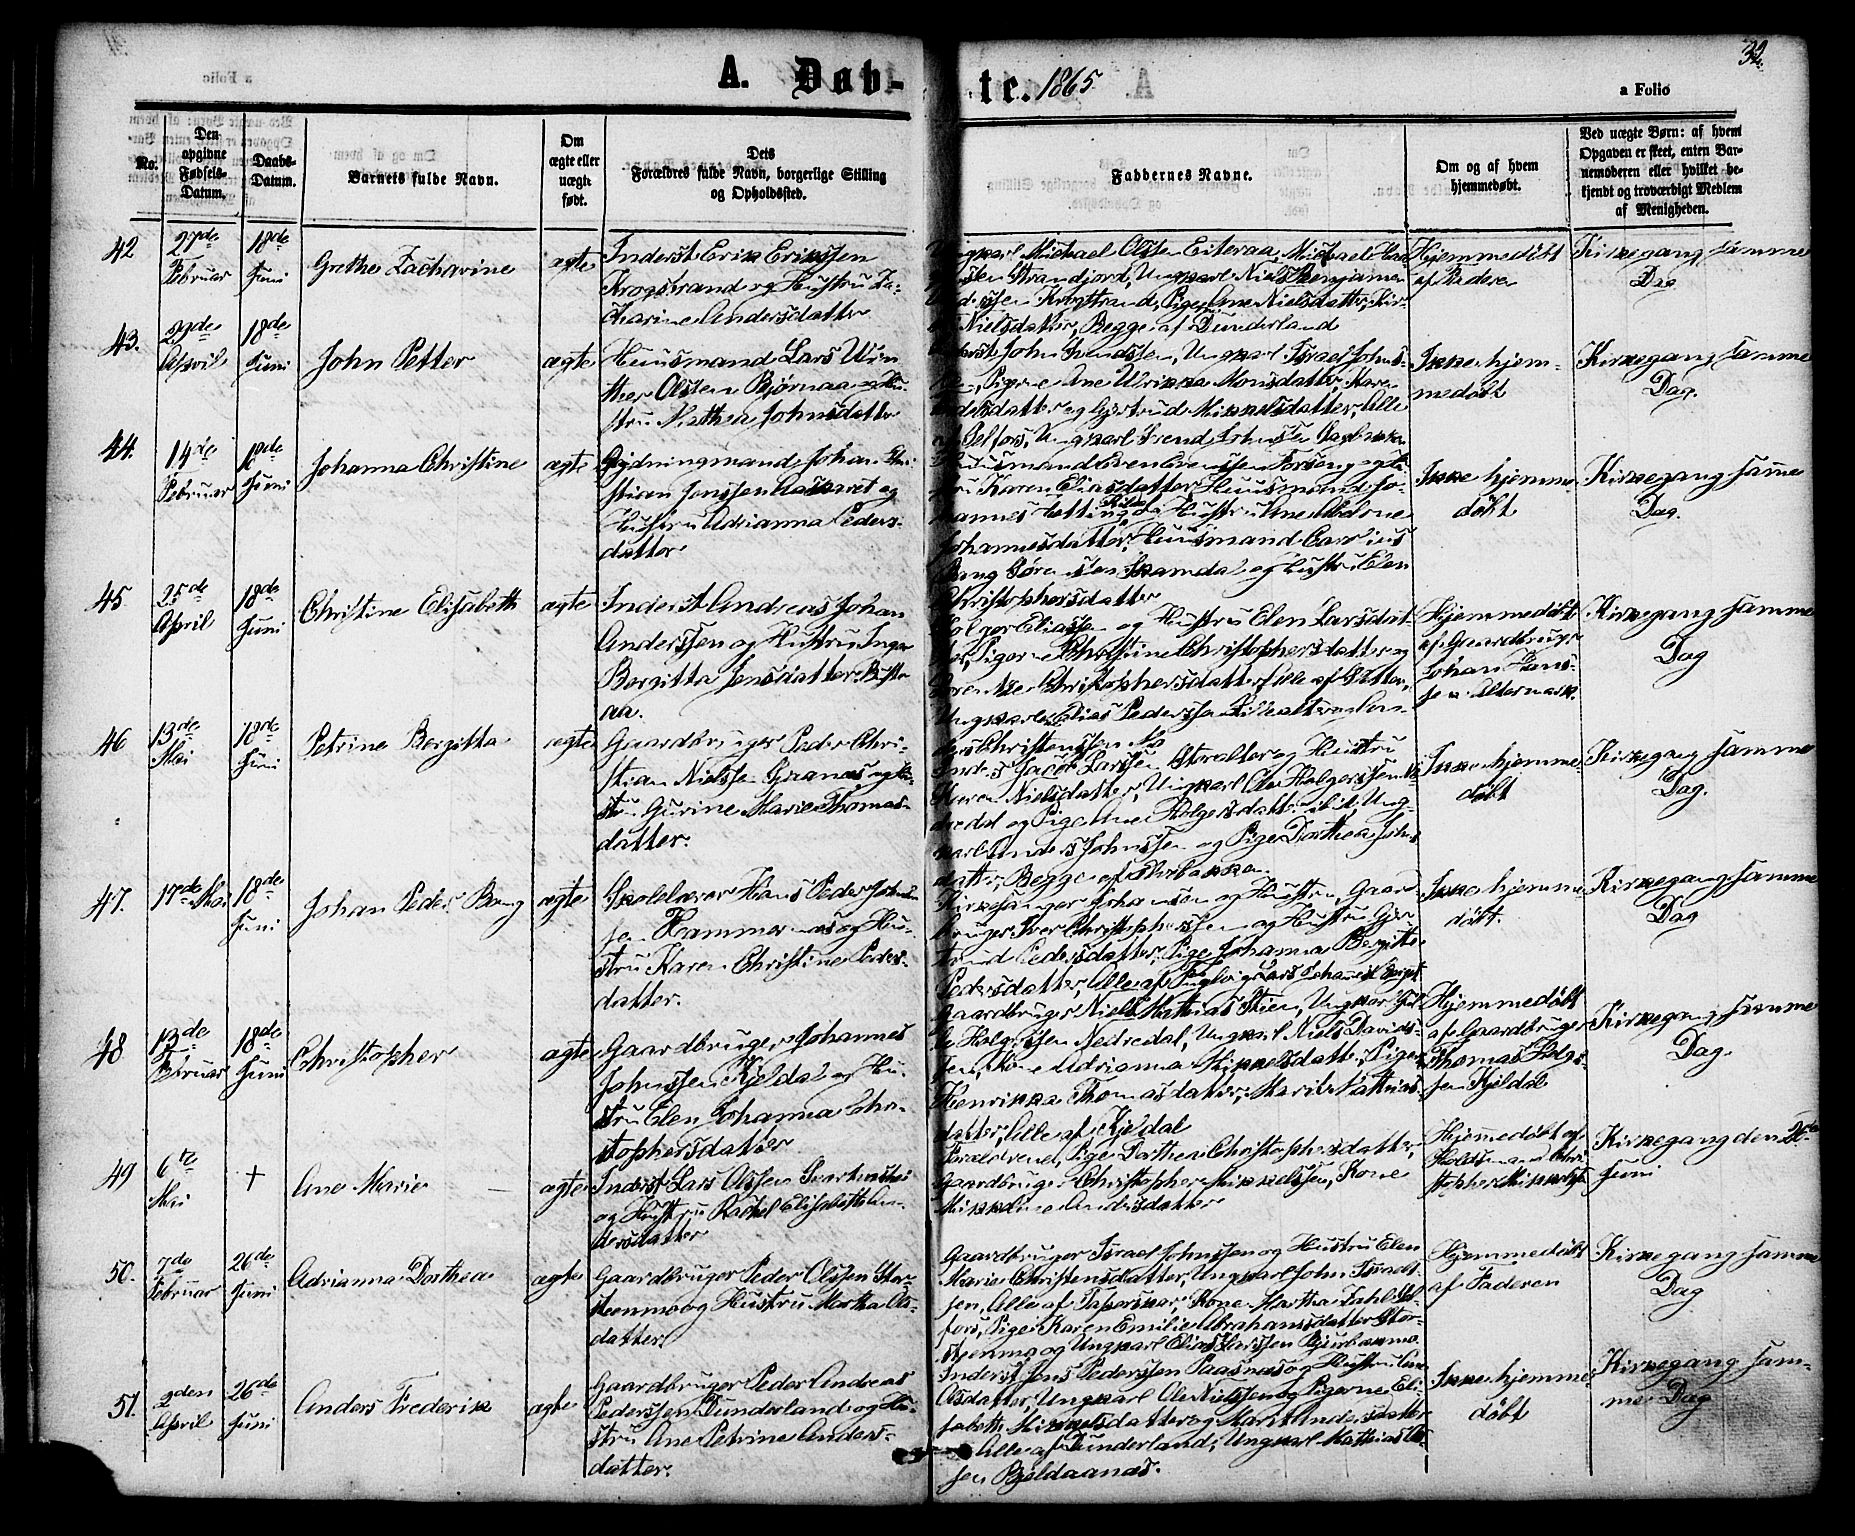 32.
A. Døb- te. 1865
a Folio
No.
Den opgivne Fødsels-Datum.
Daabs-Datum.
Barnets fulde Navn.
Om ægte eller uægte født.
Dets Forældres fulde Navn, borgerlige Stilling og Opholdssted.
Faddernes Navne.
Om og af hvem hjemmedøbt.
Ved uægte Børn: af hvem Opgaven er skeet, enten Barnemoderen eller hvilket bekjendt og troværdigt Medlem af Menigheden.
42 27de Februar 18de Juni Grethe Zacharine ægte
Inderst Erik Erikssen
Krogstrand og Hustru Za-
charine Andersdatter
Michael Olssen Eiteraa, Michael
Strandjord, Ungkarl Niels Benjamin
Krogstrand, Pige Ane Nielsdatter,
Nielsdatter, Begge af Dunderland
Hjemmedøbt
af Faderen
Kirkegang samme
Dag
43. April 18de Juni John Petter ægte
Huusmand Lars
Olssen Bjørnaa og Hu-
stru Mathea Johnsdatter
John Svendssen, Ungkarl Israel Johns-
Pigerne Ane Ulrikka Monsdatter, Maren
og Gjertrud Mikkelsdatter, Alle
af Selfors, Ungkarl Svend Johnssen
Ikke hjem-
medøbt
Kirkegang samme
Dag.
44. 14de Februar 18de Juni Johanna Christine ægte
Rydningmand Johan Chri-
stian Jenssen og
Hustru Adrianna Peders-
datter
Huusmand Even Evenssen Forseng og
Karen Eliasdatter, Huusmand Jo-
hannes og Hustru Ane
Johannesdatter, Huusmand Carolius
Bang Sørenssen og Hustru Elen
Christophersdatter
Ikke hjemme-
døbt
Kirkegang samme
Dag.
45. 25de April 18de Juni Christine Elisabeth ægte
Inderst Andreas Johan
Anderssen og Hustru Inger
Bergitta Jensdatter
Holger Eliassen og Hustru Elen Larsdat-
ter, Pigerne Christine Christophersdatter og
Christophersdatter, Alle af
Ungkarl Elias Pederssen
Christenssen
Hjemmedøbt
af Gaardbruger
Johan Hans-
sen Altermark
Kirkegang samme
Dag
46 13de Mai 18de Juni Petrine Bergitta ægte
Gaardbruger Peder Chri-
stian Nielssen Granæs og Hu-
stru Gurine Marie Thomas-
datter.
Inderst Jacob Larssen Storalter og Hustru
Maren Nielsdatter, Ungkarl Ole Holgerssen
og Pige Ane Holgersdatter ibid, Ung-
karl Anders Johnssen og Pige Dorthea Johns-
datter, Begge af
Ikke hjemme-
døbt
Kirkegang samme
Dag.
47. 17de Mai 18de Juni Johan Peder Bang ægte
Skolelærer Hans Peder Johans-
sen Hammernæs og Hu-
stru Karen Christine Peders-
datter.
Kirkesanger Johansen og Hustru, Gaard-
bruger Iver Christopherssen og Hustru Gjer-
trud Pedersdatter, Pige Johanna Bergitte
Pedersdatter, Alle af
Ikke hjemme-
døbt.
Kirkegang samme
Dag
48 13de Februar 18de Juni Christopher ægte
Gaardbruger Johannes
Johnssen Kjeldal og Hu-
stru Elen Johanna Chri-
stophersdatter
Gaardbruger Niels Mathias Stien, Ungkarl
Holgerssen Nedredal, Ungkarl Niels Davids-
sen, Kone Adrianna Mikkelsdatter, Piger
Henrikka Thomasdatter, Marit Mathias-
datter, Alle af Kjeldal
Hjemmedøbt
af Gaardbruger
Thomas Holgs-
sen Kjeldal
Kirkegang samme
Dag.
49 6te Mai + Ane Marie ægte
Inderst Lars Olssen
og Hustru Rachel Elisabeth An-
dersdatter
Forældrene, Pige Dorthea Christophersdatter,
Gaardbruger Christopher Mikkelssen, Kone
Mikkeline Andersdatter
Hjemmedøbt af
Holdsmand Chri-
stopher Mikkelss.
Kirkegang den 26de
Juni
50. 7de Februar 26de Juni Adrianna Dorthea ægte
Gaardbruger Peder Olssen Stor-
steenmo og Hustru Martha Ols-
datter.
Gaardbruger Israel Johnssen og Hustru Elen
Marie Christensdatter, Ungkarl John Israels-
sen, Alle af Kone Martha Zahl Sel-
fors, Pige Karen Emilie Abrahamsdatter Stor-
steenmo og Ungkarl Elias Larssen
Hjemmedøbt
af Faderen
Kirkegang samme
Dag
51. 2den April 26de Juni Anders Frederik ægte
Gaardbruger Peder Andreas
Pederssen Dunderland og Hu-
stru Ane Petrine Anders-
datter.
Inderst Jens Pederssen Raasnæs og Hustru Ane
Olsdatter, Ungkarl Ole Nielssen og Pigerne Eli-
sabeth Mikkelsdatter og Marit Andersdatter
Alle af Dunderland, Ungkarl Mathias Ols-
sen Bjeldaanæs.
Ikke hjemme-
døbt
Kirkegang sam-
me Dag